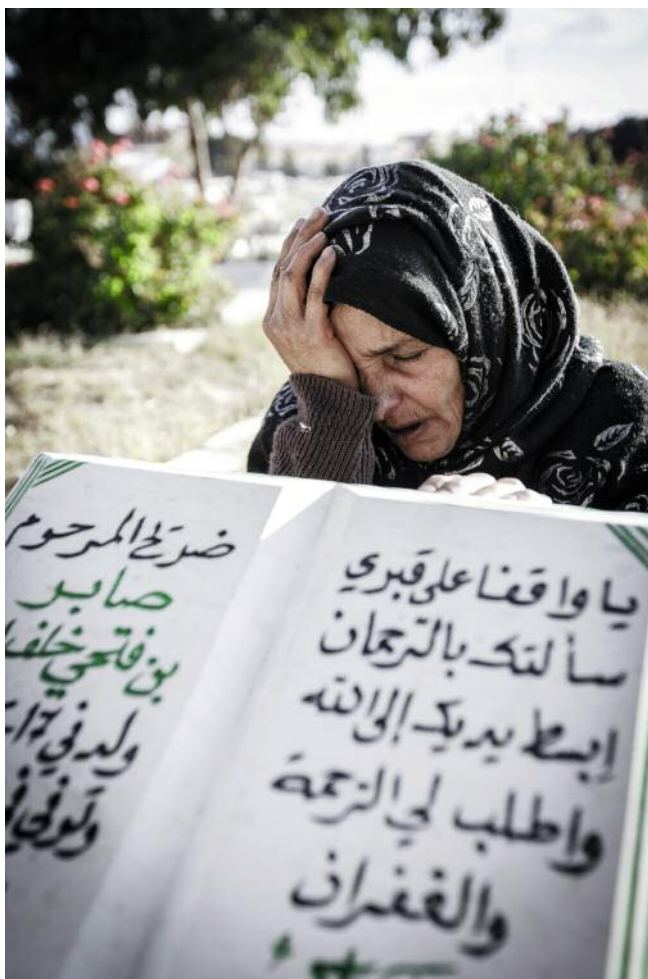 يا واقفا على قبري
سألتك بالرحمان
إبسط يديك إلى الله
واطلب لي الرحمة
والغفران
ضريح المرحوم
صابر
بن فتحي
ولد في
وتوفي